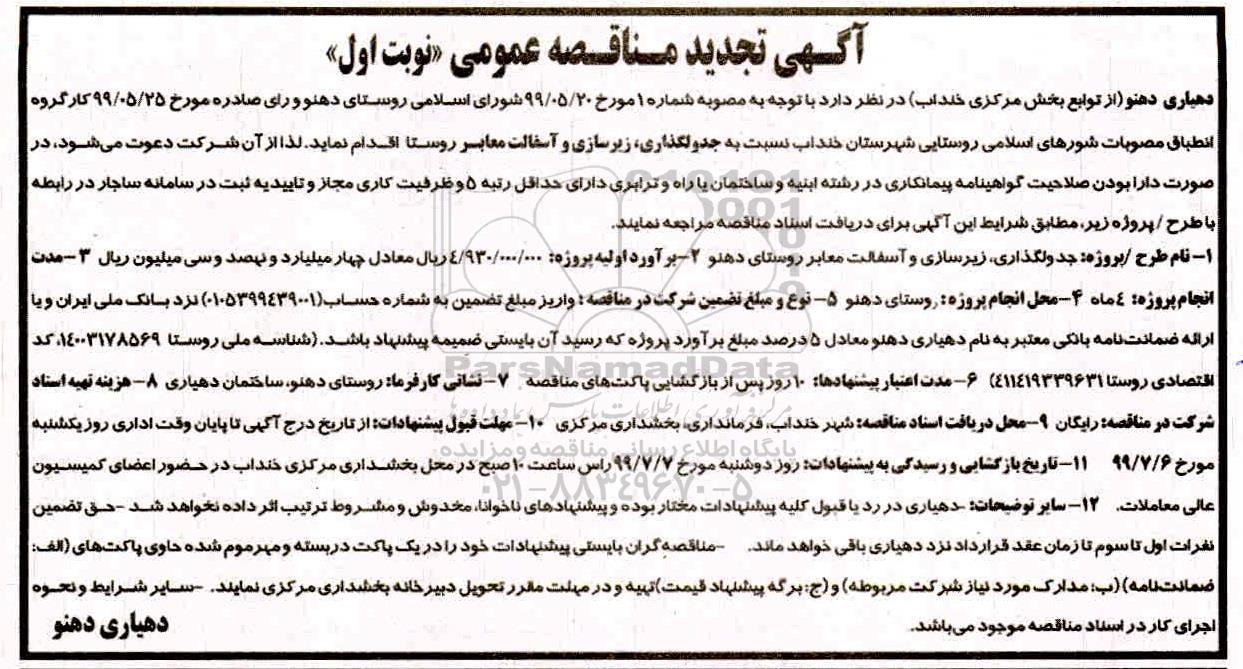 آگهی تجدید مناقصه عمومی «نوبت اول»
دهیاری دهنو (از توابع بخش مرکزی خنداب) در نظر دارد با توجه به مصوبه شماره ۱ مورخ ۹۹/۰۵/۲۰ شورای اسلامی روستای دهنو و رای صادره مورخ ۹۹/۰۵/۲۵ کارگروه
انطباق مصوبات شورهای اسلامی روستایی شهرستان خنداب نسبت به جدولگذاری، زیرسازی و آسفالت معابر روستا اقدام نماید. لذا از آن شرکت دعوت می‌شود، در
صورت دارا بودن صلاحیت گواهینامه پیمانکاری در رشته ابنیه و ساختمان یا راه و ترابری دارای حداقل رتبه ۵ و ظرفیت کاری مجاز و تاییدیه ثبت در سامانه ساجار در رابطه
با طرح / پروژه زیر، مطابق شرایط این آگهی برای دریافت اسناد مناقصه مراجعه نمایند.
۱- نام طرح /پروژه: جدولگذاری، زیرسازی و آسفالت معابر روستای دهنو ۲- برآورد اولیه پروژه: ۴/۹۳۰/۰۰۰/۰۰۰ ریال معادل چهار میلیارد و نهصد و سی میلیون ریال ۳- مدت
انجام پروژه: ۴ ماه ۴- محل انجام پروژه: روستای دهنو ۵- نوع و مبلغ تضمین شرکت در مناقصه: واریز مبلغ تضمین به شماره حساب (۰۱۰۵۳۹۹۴۳۹۰۰۱) نزد بانک ملی ایران و یا
ارائه ضمانت‌نامه بانکی معتبر به نام دهیاری دهنو معادل ۵ درصد مبلغ برآورد پروژه که رسید آن بایستی ضمیمه پیشنهاد باشد. (شناسه ملی روستا ۱۴۰۰۳۱۷۸۵۶۹، کد
اقتصادی روستا ۴۱۱۴۱۹۳۳۹۶۳۱) ۶- مدت اعتبار پیشنهادها: ۱۰ روز پس از بازگشایی پاکت‌های مناقصه ۷- نشانی کارفرما: روستای دهنو، ساختمان دهیاری ۸- هزینه تهیه اسناد
شرکت در مناقصه: رایگان ۹- محل دریافت اسناد مناقصه: شهر خنداب، فرمانداری، بخشداری مرکزی ۱۰- مهلت قبول پیشنهادات: از تاریخ درج آگهی تا پایان وقت اداری روز یکشنبه
مورخ ۹۹/۷/۶ ۱۱- تاریخ بازگشایی و رسیدگی به پیشنهادات: روز دوشنبه مورخ ۹۹/۷/۷ راس ساعت ۱۰ صبح در محل بخشداری مرکزی خنداب در حضور اعضای کمیسیون
عالی معاملات. ۱۲- سایر توضیحات: -دهیاری در رد یا قبول کلیه پیشنهادات مختار بوده و پیشنهادهای ناخوانا، مخدوش و مشروط ترتیب اثر داده نخواهد شد -حق تضمین
نفرات اول تا سوم تا زمان عقد قرارداد نزد دهیاری باقی خواهد ماند. -مناقصه‌گران بایستی پیشنهادات خود را در یک پاکت دربسته و مهر موم شده حاوی پاکت‌های (الف:
ضمانت‌نامه) (ب: مدارک مورد نیاز شرکت مربوطه) و (ج: برگه پیشنهاد قیمت) تهیه و در مهلت مقرر تحویل دبیرخانه بخشداری مرکزی نمایند. -سایر شرایط و نحوه
اجرای کار در اسناد مناقصه موجود می‌باشد.
دهیاری دهنو
ParsNamadData
پایگاه اطلاع رسانی مناقصه و مزایده
۰۲۱-۸۸۳۴۹۶۷۰-۵